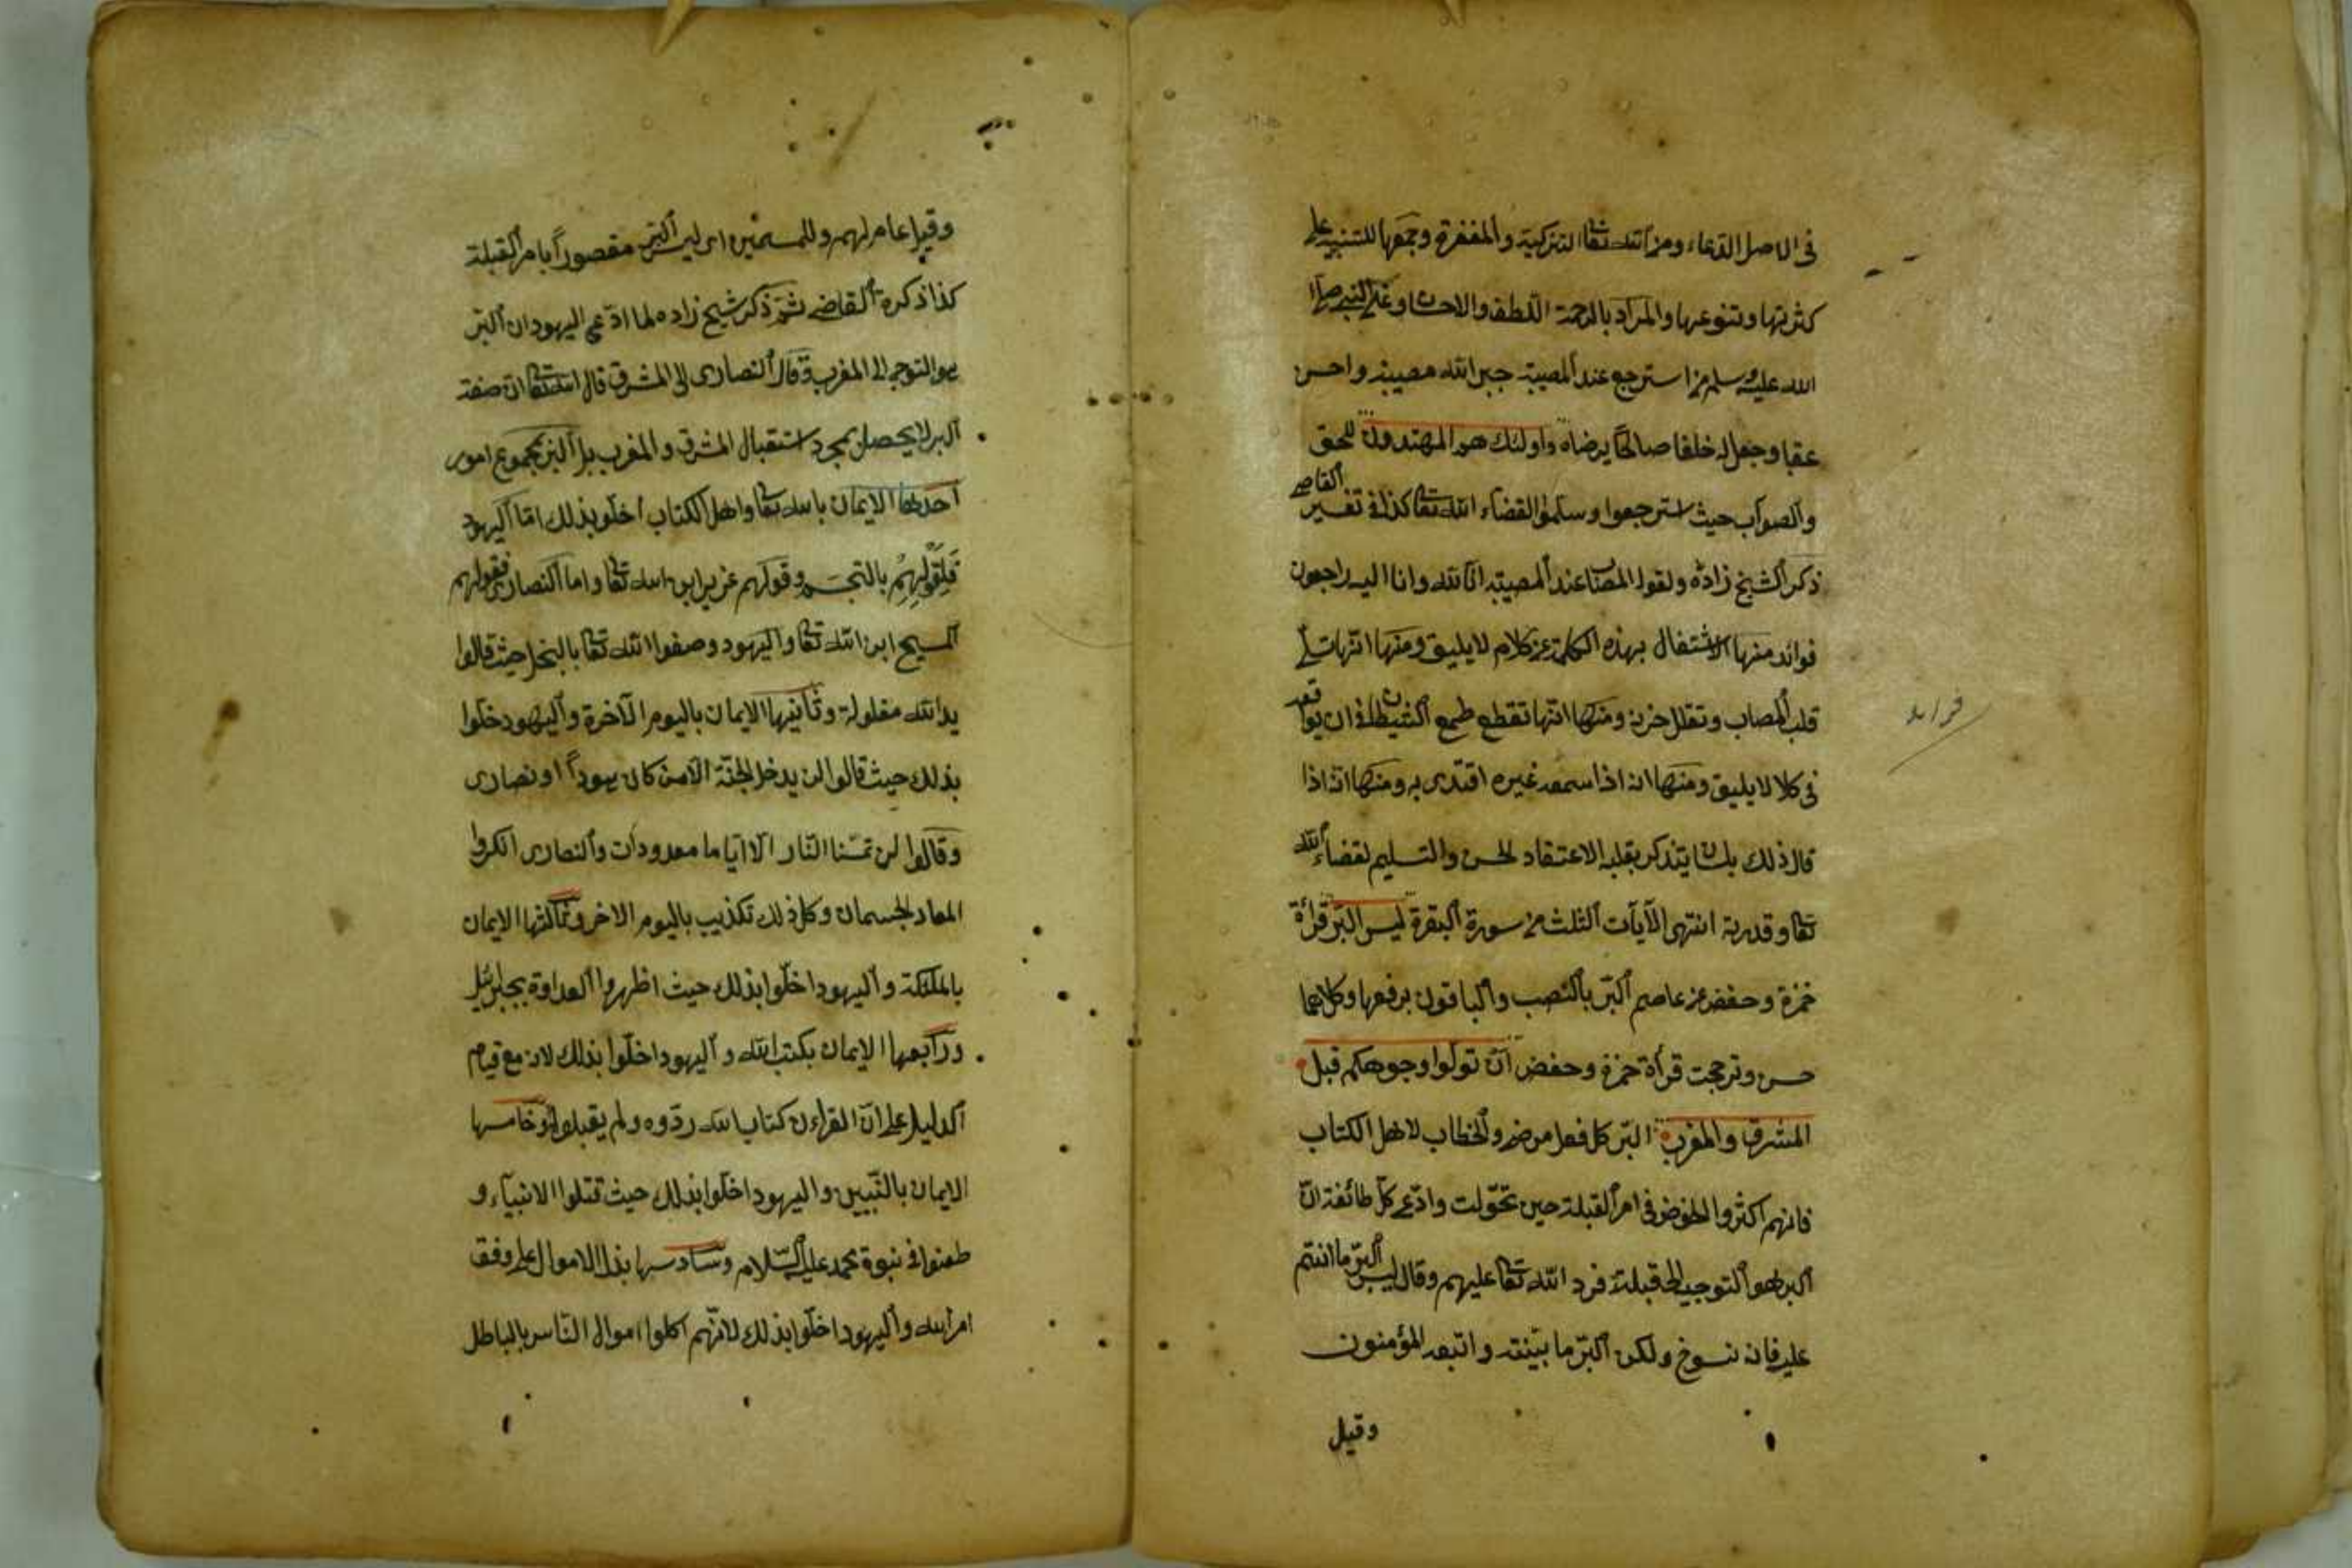 في الاصل الدعاء ومن الله تعا التزكية والمغفرة وجمعها للتنبيه على
كثرتها وتنوعها والمراد بالرحمة اللطف والاحسان وعن النبي صلى
الله عليه وسلم من استرجع عند المصيبة جبر الله مصيبته واحسن
عقباه وجعل له خلفا صالحا يرضاه واولئك هم المهتدون للحق
والصواب حيث استرجعوا وسلموا لقضاء الله تعا كذا في تفسير القاضي
ذكر الشيخ زاده ولقول المصاب عند المصيبة انا لله وانا اليه راجعون
فوائد منها الاشتغال بهذه الكلمة عن كلام لا يليق ومنها انها تسلي
قلب المصاب وتقلل حزنه ومنها انها تقطع طمع الشيطان في ان يوافقه
في كلام لا يليق ومنها انه اذا سمعه غيره اقتدى به ومنها انه اذا
قال ذلك بلسانه يتذكر بقلبه الاعتقاد الحسن والتسليم لقضاء الله
تعا وقدرته انتهى الآيات الثلث من سورة البقرة ليس البر قرأة
حمزة وحفص عن عاصم البر بالنصب والباقون برفعها وكلاهما
حسن وترجحت قرأة حمزة وحفص ان تولوا وجوهكم قبل
المشرق والمغرب البر كل فعل مرضي والخطاب لاهل الكتاب
فانهم اكثروا الخوض في امر القبلة حين تحولت وادعى كل طائفة ان
البر هو التوجه الى قبلته فرد الله تعا عليهم وقال ليس البر ما انتم
عليه فانه منسوخ ولكن البر ما بينته واتبعه المؤمنون
وقيل
فوايد
وقيل عام لهم وللمسلمين اى ليس البر مقصورا بامر القبلة
كذا ذكره القاضي ثم ذكر شيخ زاده لما ادعى اليهود ان البر
هو التوجه الى المغرب وقال النصارى الى المشرق قال الله تعا ان صفة
البر لا يحصل بمجرد استقبال المشرق والمغرب بل البر بمجموع امور
احدها الايمان بالله تعا واهل الكتاب اخلو بذلك اما اليهود
فلقولهم بالتجسم وقولهم عزير ابن الله تعا واما النصارى فقولهم
المسيح ابن الله تعا واليهود وصفوا الله تعا بالبخل حيث قالوا
يد الله مغلولة وثانيها الايمان باليوم الآخرة واليهود خلوا
بذلك حيث قالوا لن يدخل الجنة الا من كان هودا او نصارى
وقالوا لن تمسنا النار الا اياما معدودات والنصارى انكروا
المعاد الجسمان وكل ذلك تكذيب باليوم الاخر وثالثها الايمان
بالملئكة واليهود اخلوا بذلك حيث اظهروا العداوة بجبرئيل
ورابعها الايمان بكتب الله واليهود اخلوا بذلك لان مع قيام
الدليل على ان القراءن كتاب الله ردوه ولم يقبلوه وخامسها
الايمان بالنبيين واليهود اخلوا بذلك حيث قتلوا الانبياء و
طعنوا في نبوة محمد عليه السلام وسادسها بذل الاموال على وفق
امر الله واليهود اخلوا بذلك لانهم اكلوا اموال الناس بالباطل